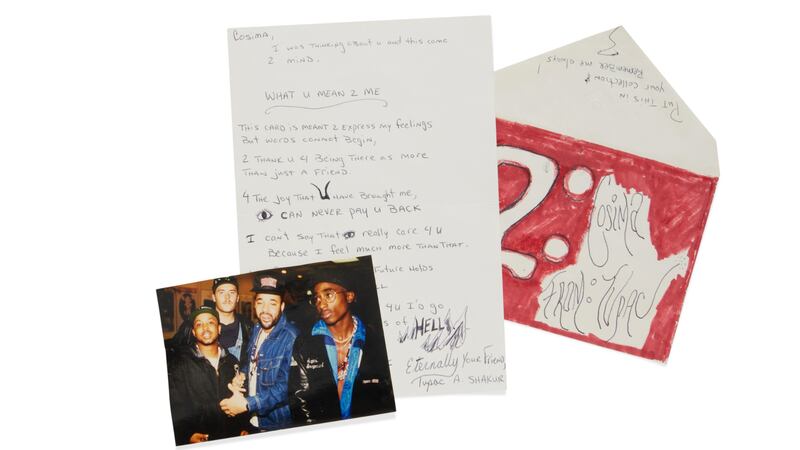 Cosima,
I was thinking about u and this came
2 mind.
What u mean 2 me
This card is meant 2 express my feelings
But words cannot begin,
2 thank u 4 being there as more
than just a friend.
4 the joy that U have brought me,
can never pay u back
I can't say that really care 4 u
Because I feel much more than that.
future holds
4u I'd go
of HELL
Eternally your friend,
Tupac A. Shakur
Put this in
your collection &
Remember me always!
2:
Cosima
FROM: Tupac